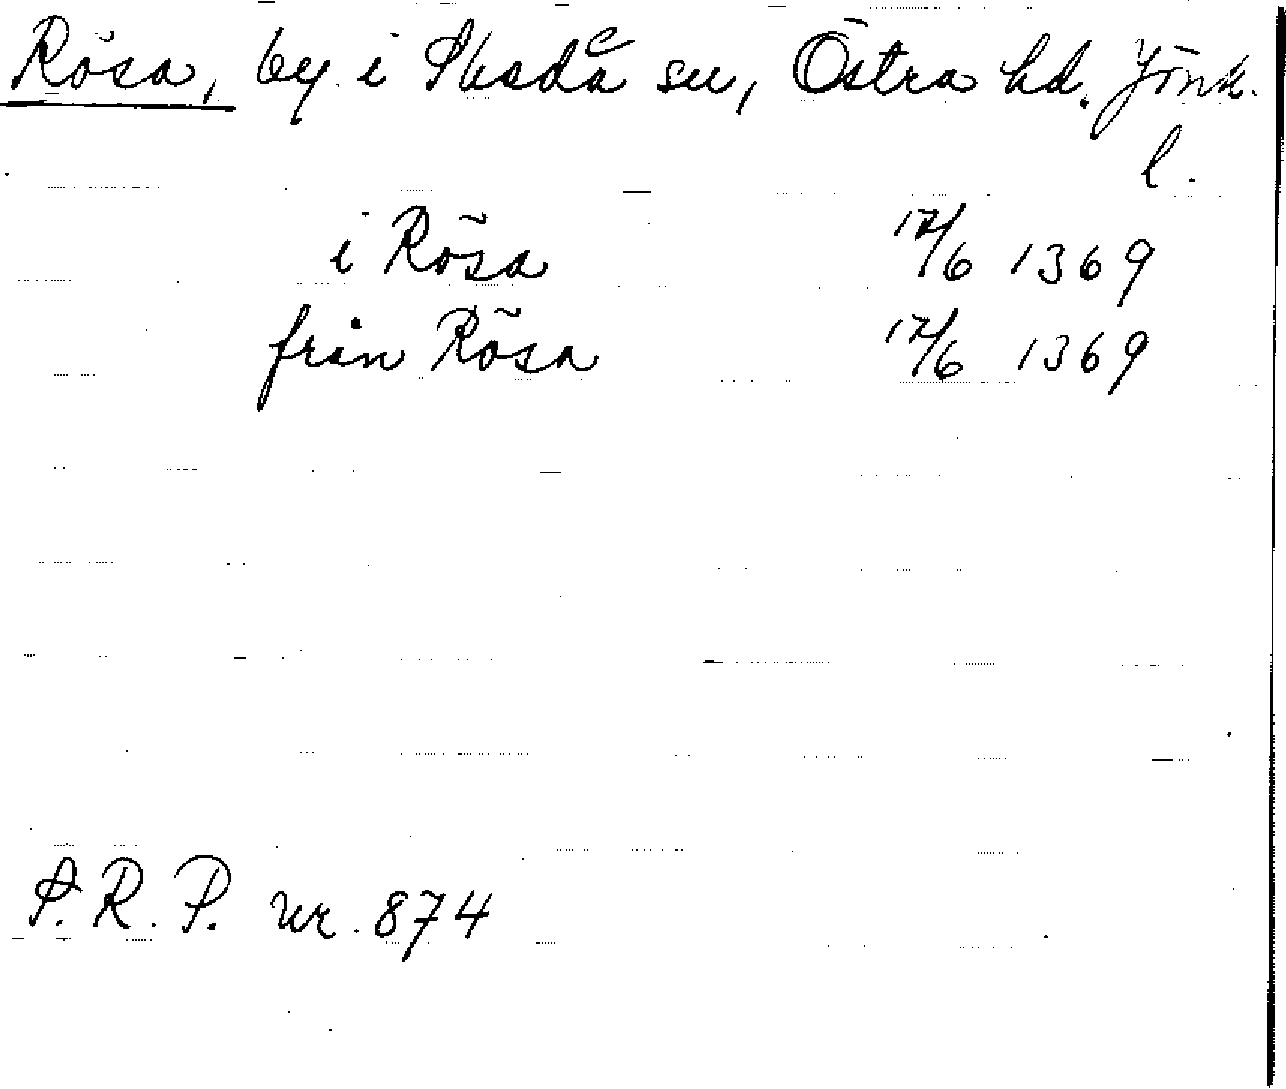 Rösa, by i Skede sn, Östra hd. Jönk.
l.
i Rösa 17/6 1369
från Rösa 17/6 1369
S. R. P. nr. 874